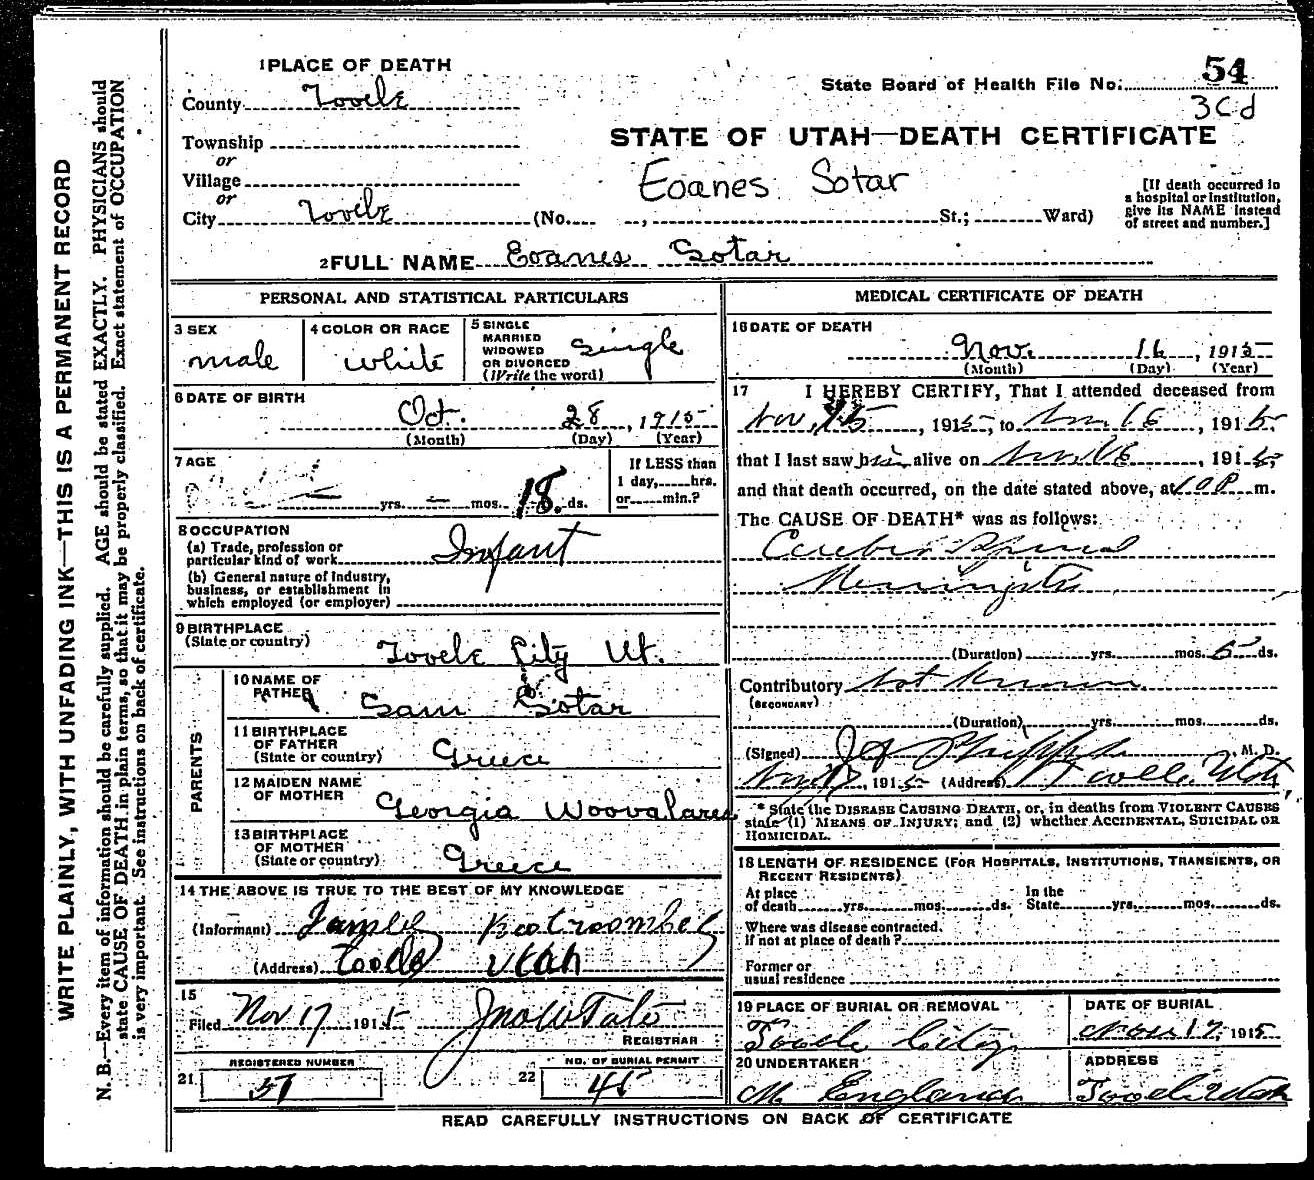 WRITE PLAINLY, WITH UNFADING INK—THIS IS A PERMANENT RECORD
N. B.—Every item of information should be carefully supplied. AGE should be stated EXACTLY. PHYSICIANS should
state CAUSE OF DEATH in plain terms, so that it may be properly classified. Exact statement of OCCUPATION
is very important. See instructions on back of certificate.
1 PLACE OF DEATH
County Tooele
Township
or
Village
or
City Tooele (No. , St.; Ward)
State Board of Health File No. 54
3cd
STATE OF UTAH—DEATH CERTIFICATE
Eoanes Sotar
[If death occurred in
a hospital or institution,
give its NAME instead
of street and number.]
2 FULL NAME Eoanes Sotar
PERSONAL AND STATISTICAL PARTICULARS
3 SEX male
4 COLOR OR RACE white
5 SINGLE
MARRIED
WIDOWED
OR DIVORCED
(Write the word) Single
6 DATE OF BIRTH
Oct. 28, 1915
(Month) (Day) (Year)
7 AGE
yrs. mos. 18 ds.
If LESS than
1 day, hrs.
or min.?
8 OCCUPATION
(a) Trade, profession or
particular kind of work Infant
(b) General nature of industry,
business, or establishment in
which employed (or employer)
9 BIRTHPLACE
(State or country) Tooele City Ut.
PARENTS
10 NAME OF
FATHER Sam Sotar
11 BIRTHPLACE
OF FATHER
(State or country) Greece
12 MAIDEN NAME
OF MOTHER Georgia
13 BIRTHPLACE
OF MOTHER
(State or country) Greece
14 THE ABOVE IS TRUE TO THE BEST OF MY KNOWLEDGE
(Informant)
(Address) Tooele Utah
15
Filed Nov 17 1915
REGISTRAR
REGISTERED NUMBER
21 37
NO. OF BURIAL PERMIT
22 45
MEDICAL CERTIFICATE OF DEATH
16 DATE OF DEATH
Nov. 16, 1915
(Month) (Day) (Year)
17 I HEREBY CERTIFY, That I attended deceased from
Nov. 15, 1915, to Nov 16, 1915,
that I last saw him alive on Nov 16, 1915,
and that death occurred, on the date stated above, at 10 P m.
The CAUSE OF DEATH* was as follows:
Cerebro Spinal
Meningitis
(Duration) yrs. mos. 5 ds.
Contributory Not Known
(SECONDARY)
(Duration) yrs. mos. ds.
(Signed) , M. D.
1915 (Address) Tooele, Utah
* State the DISEASE CAUSING DEATH, or, in deaths from VIOLENT CAUSES,
state (1) MEANS OF INJURY; and (2) whether ACCIDENTAL, SUICIDAL OR
HOMICIDAL.
18 LENGTH OF RESIDENCE (FOR HOSPITALS, INSTITUTIONS, TRANSIENTS, OR
RECENT RESIDENTS)
At place
of death yrs. mos. ds.
In the
State yrs. mos. ds.
Where was disease contracted,
if not at place of death?
Former or
usual residence
19 PLACE OF BURIAL OR REMOVAL
Tooele City
DATE OF BURIAL
Nov 17, 1915
20 UNDERTAKER
M. England
ADDRESS
Tooele Utah
READ CAREFULLY INSTRUCTIONS ON BACK OF CERTIFICATE